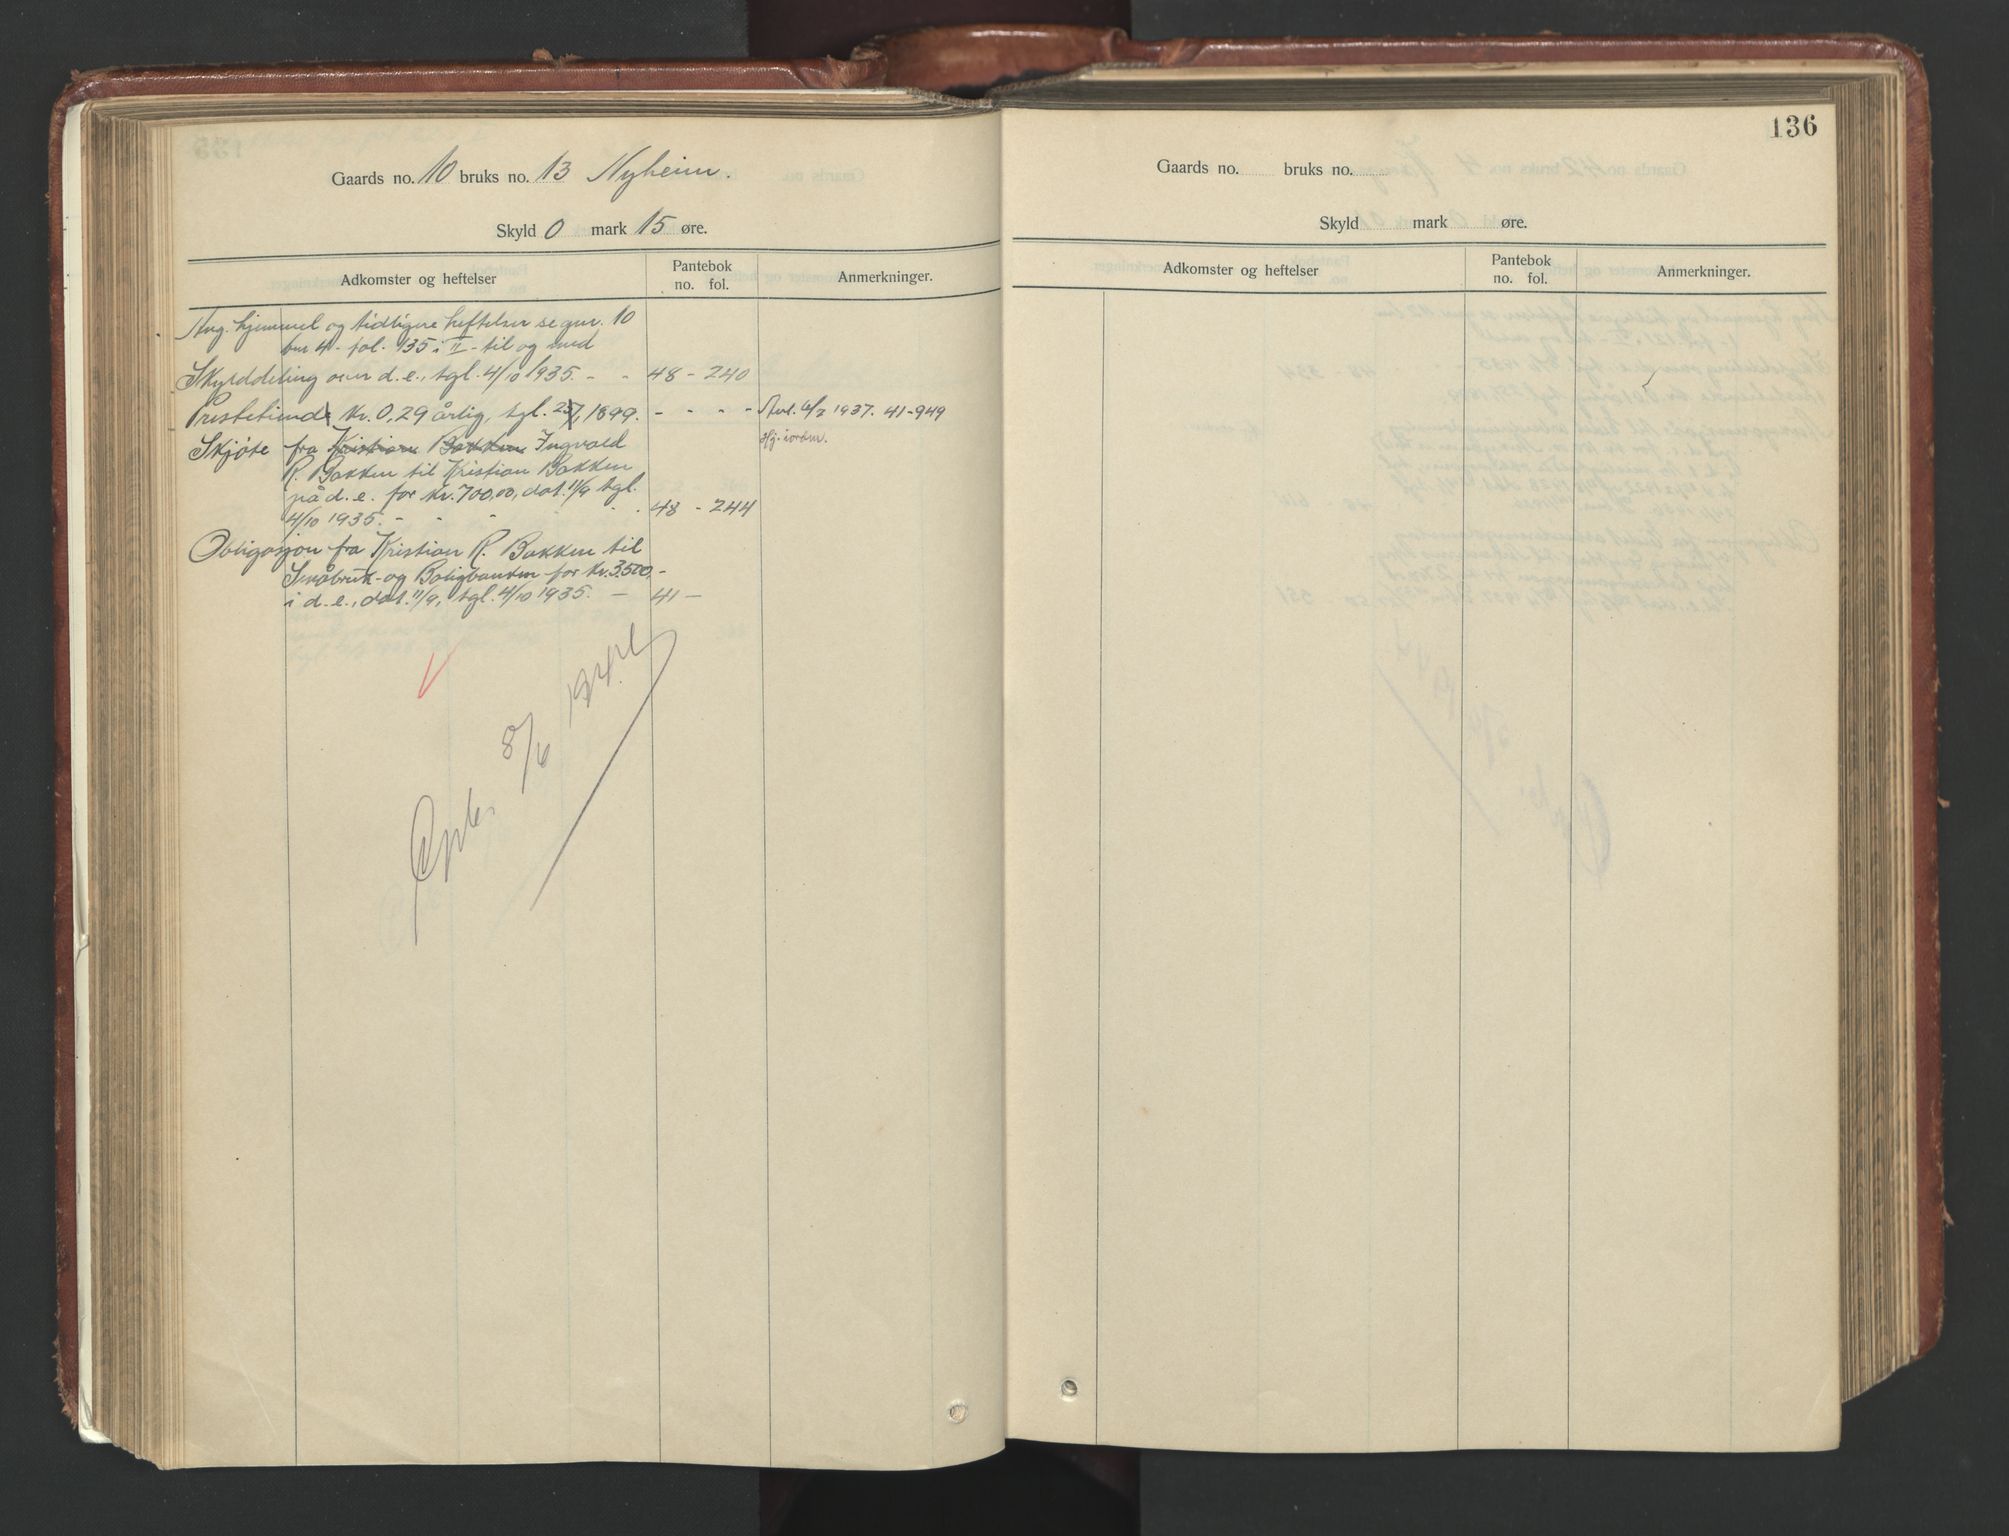 Gaards no. 10 bruks no. 13 Nyheim.
Skyld 0 mark 15 øre.
Adkomster og heftelser
Pantebok
no. fol.
Anmerkninger.
Ang. hjemmel og tidligere heftelser se gnr. 10
bnr 4 - fol. 135 i II - til og med
Skylddeling over d.e., tgl. 4/10 1935. - - 48 - 240
Prestetiende kr. 0,29 årlig, tgl. 1899. - - - - Avl. 6/2 1937. 41-949
Skjøte fra Kristian Bakken Ingvald
R. Bakken til Kristian Bakken
på d.e. for kr. 700,00, dat. 11/9 tgl.
4/10 1935. - - - - - 48 - 244
Obligasjon fra Kristian R. Bakken til
Småbruk- og Boligbanken for kr. 3.500,-
i d.e., dat. 11/9, tgl. 4/10 1935. - 41 -
8/6
136
Gaards no. bruks no.
Skyld mark øre.
Adkomster og heftelser
Pantebok
no. fol.
Anmerkninger.